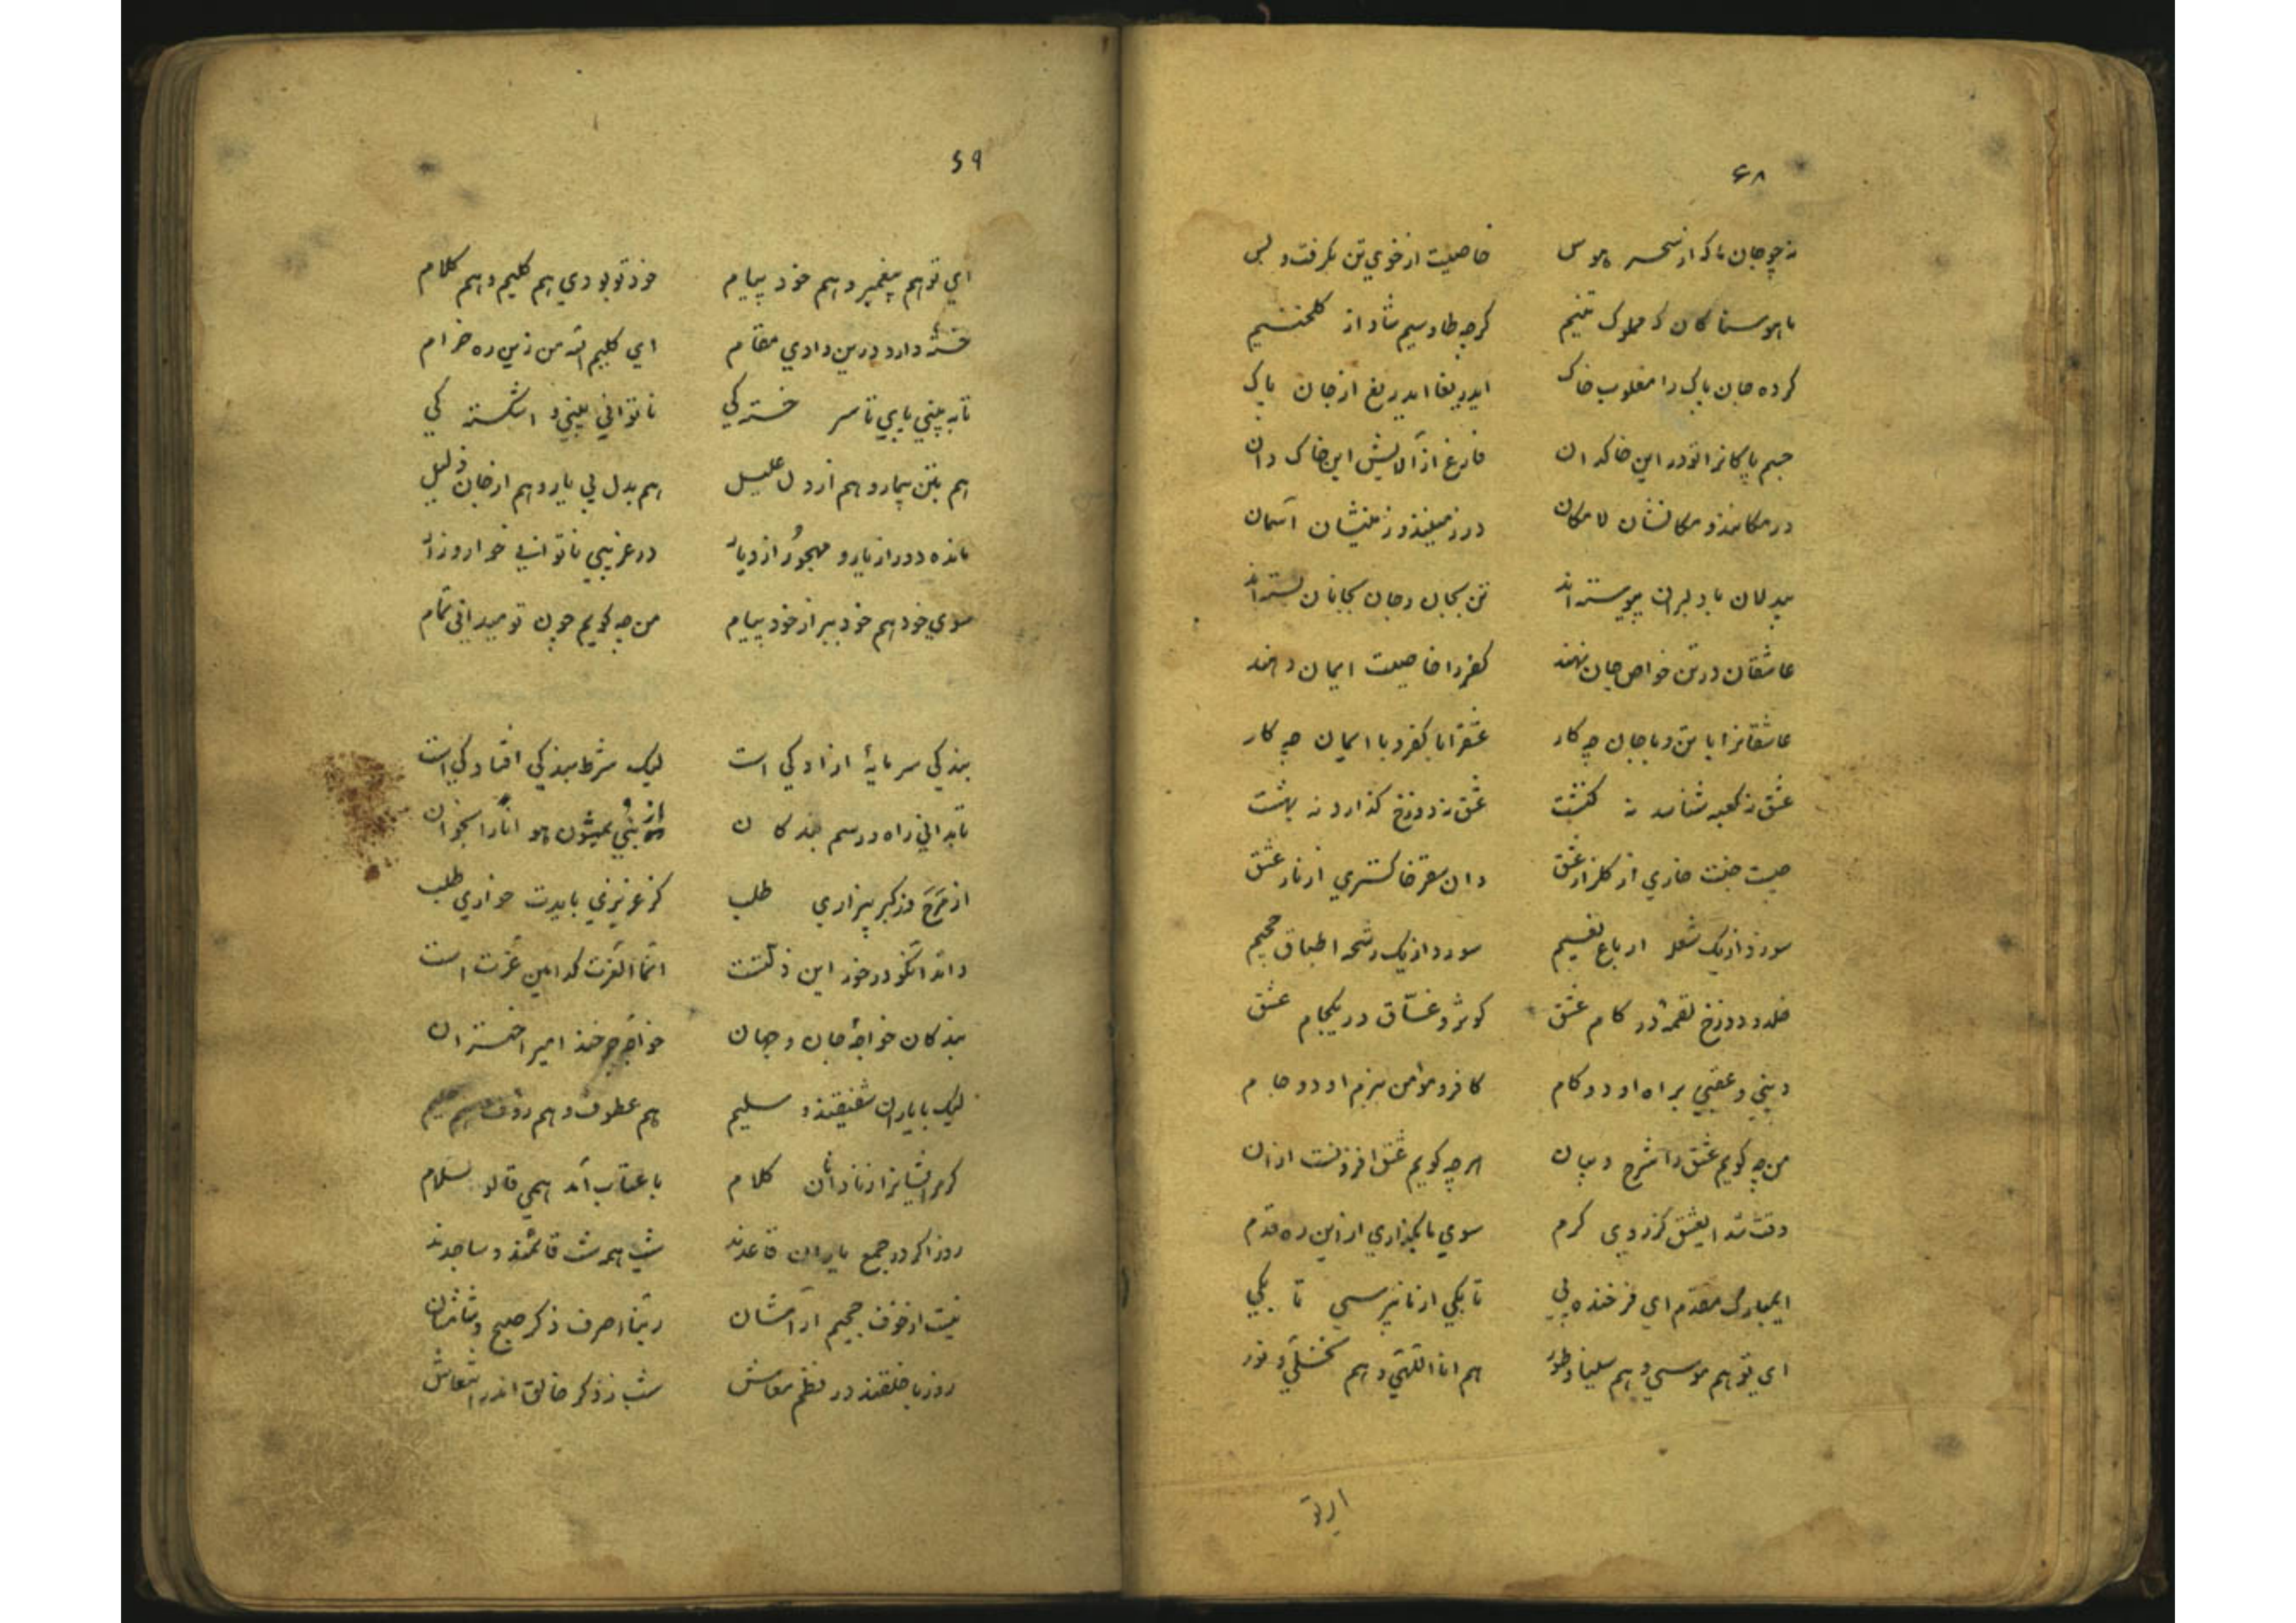 ۶۸
نه چو جان ما که از سحر هوس خاصیت از خوی تن بگرفت و بس
ما هوسناکان که مملوک تنیم گرچه طاوسیم شاد از گلخنیم
کرده جان پاک را مغلوب خاک ایدریغا ایدریغ از جان پاک
جسم پاکانرا تو در این خاکدان فارغ از آلایش این خاک دان
در مکانند و مکانشان لا مکان در زمینند و زمینشان آسمان
بیدلان با دلبران پیوسته‌اند تن بجان و جان بجانان بسته‌اند
عاشقان در تن خواص جان نهند کفر را خاصیت ایمان دهند
عاشقانرا با تن و با جان چه کار عشقرا با کفر و با ایمان چه کار
عشق نه کعبه شناسد نه کنشت عشق نه دوزخ گذارد نه بهشت
چیست جنت خاری از گلزار عشق دان سقر خاکستری از نار عشق
سوزد از یک شعله ارباع نعیم سوزد از یک رشحه اطباق جحیم
خلد و دوزخ لقمهٔ در کام عشق کوثر و غسّاق در یکجام عشق
دینی و عقبی براه او دو گام کافر و مؤمن ببزم او دو جام
من چه گویم عشق را شرح و بیان هر چه گویم عشق افزونست از ان
وقت شد ایعشق کز روی کرم سوی ما بگذاری از این ره قدم
ایمبارک مقدم ای فرخنده پی تا بکی از ما نپرسی تا بکی
ای تو هم موسی و هم سینا و طور هم انا اللهی و هم نخلی و نور
ای تو
۶۹
ای تو هم پیغمبر و هم خود پیام خود تو بودی هم کلیم و هم کلام
خستهٔ دارد درین وادی مقام ای کلیم الله من زین ره خرام
تا به بینی پای تا سر خستگی ناتوانی بینی و اشکستگی
هم بتن بیمار و هم از دل علیل هم بدل بی یار و هم از جان ذلیل
مانده دور از یار و مهجور از دیار در غریبی ناتوانی خوار و زار
سوی خود هم خود ببر از خود پیام من چه گویم چون تو میدانی تمام
بندگی سرمایهٔ ازادگی است لیک شرط بندگی افتادگی است
تا بدانی راه و رسم بندگان از نبی یمشون هونا را بخوان
از مرح وز کبر بیزاری طلب گر عزیزی بایدت خواری طلب
داند انکو در خور این ذلتست انما العزت کدامین عزت است
بندگان خواجهٔ جان و جهان خواجهٔ چرخند امیر اختران
لیک با یاران شفیقند و سلیم هم عطوف و هم رؤف و هم
گر مر ایشانرا ز نادانان کلام با عتاب آمد همی قالو سلام
روز اگر در جمع یاران قاعدند شب همه شب قائمند و ساجدند
نیست از خوف جحیم آرامشان ربنا اصرف ذکر صبح و شامشان
روز با خلقند در نظم معاش شب ز ذکر خالق اندر انتعاش